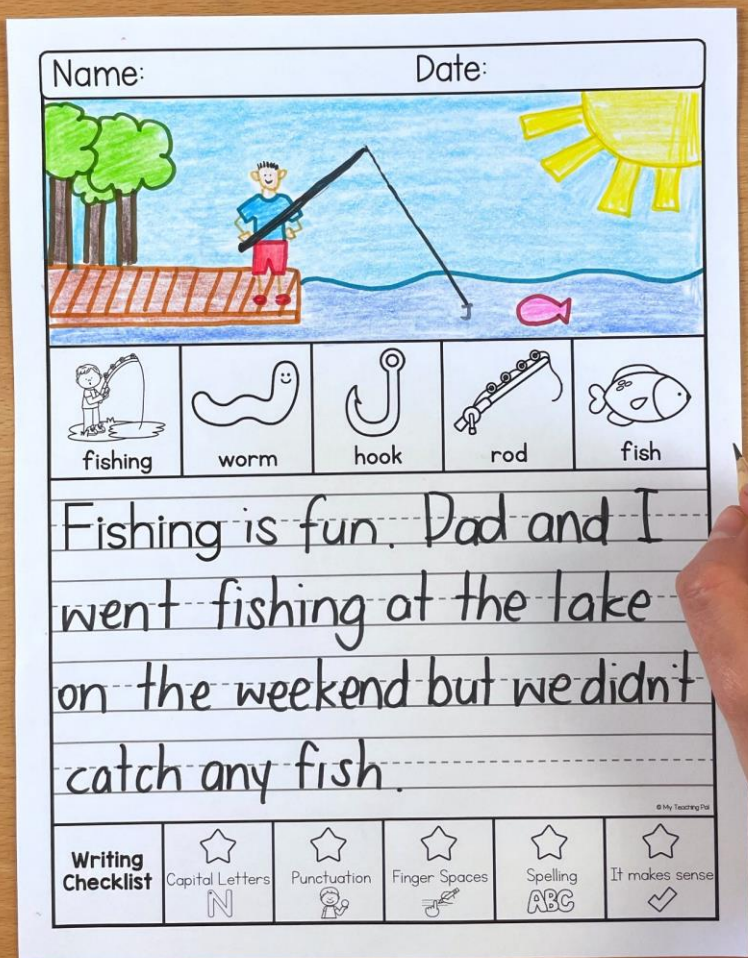 Name: Date:
fishing worm hook rod fish
Fishing is fun. Dad and I
went fishing at the lake
on the weekend but we didn't
catch any fish.
© My Teaching Pal
Writing Checklist
Capital Letters Punctuation Finger Spaces Spelling It makes sense
N ABC